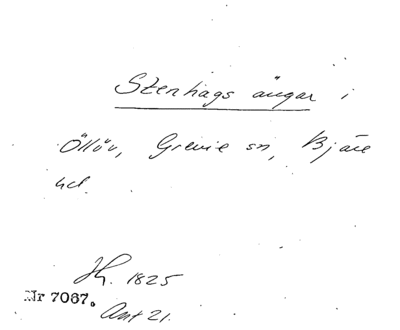 Stenhags ängar i
Öllöv, Grevie sn, Bjäre
hd.
Jh. 1825
Nr 7067.
Ant 21.